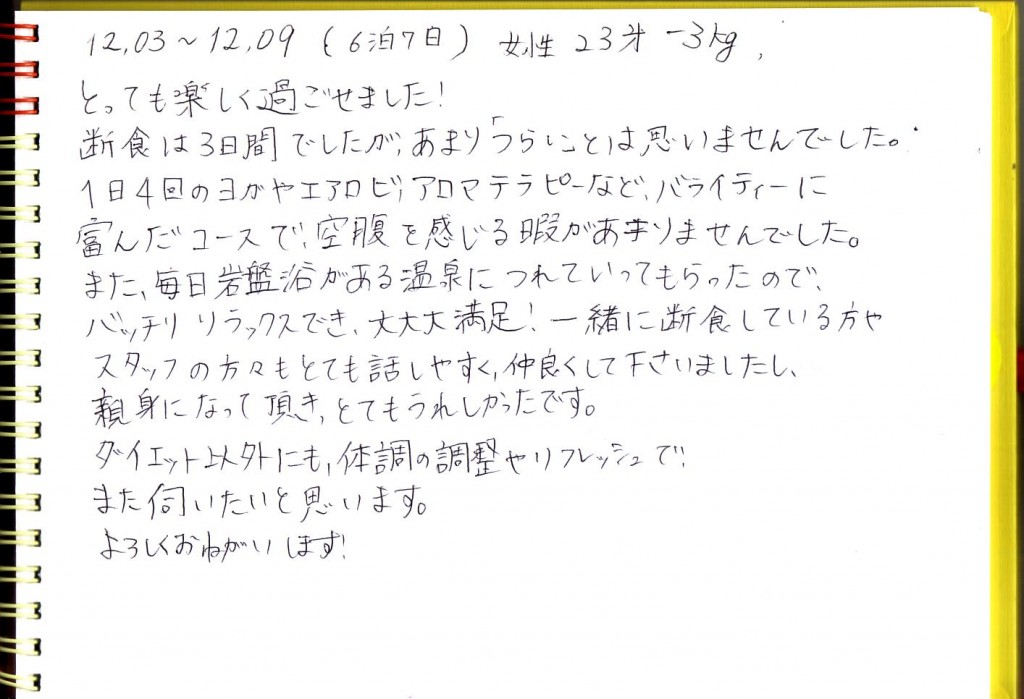 12,03～12,09 (6泊7日) 女性 23才 -3kg,
とっても楽しく過ごせました!
断食は3日間でしたが、あまり「つらいことは思いませんでした。
1日4回のヨガやエアロビ、アロマテラピーなど、バライティーに
富んだコースで、空腹を感じる暇があまりませんでした。
また、毎日岩盤浴がある温泉につれていってもらったので、
バッチリリラックスでき、大大大満足!一緒に断食している方や
スタッフの方々もとても話しやすく、仲良くして下さいましたし、
親身になって頂き、とてもうれしかったです。
ダイエット以外にも、体調の調整やリフレッシュで、
また伺いたいと思います。
よろしくおねがいします!